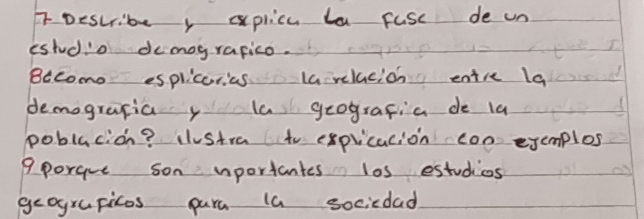 7 Describe y explica la fase de un
estudio demografico.
8¿como esplicarias la relación entre la
demografia y la geografia de la
población? ilustra tu explicación con ejemplos
9 porque son inportantes los estudios
geograficos para la sociedad